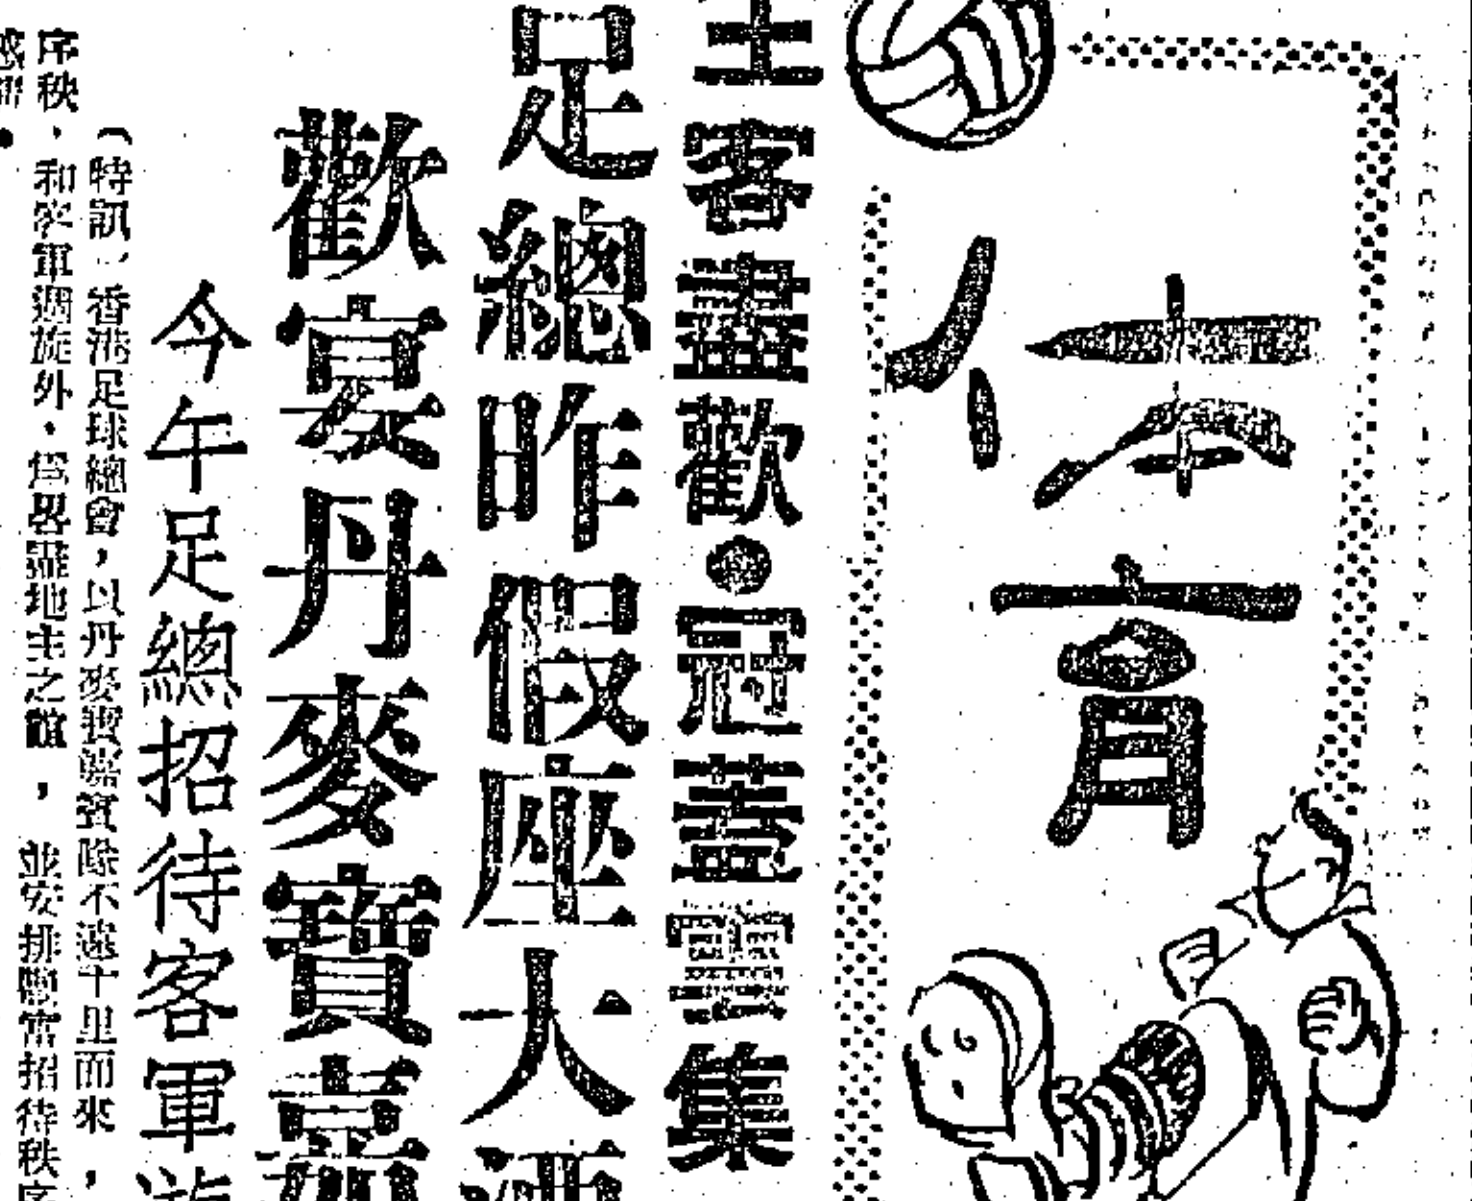 体育
主客盡歡●冠蓋雲集
足總昨假座大酒
歡宴丹麥寶嘉
今午足總招待客軍遊
（特訊）香港足球總會，以丹麥寶嘉賓隊不遠千里而來，
和客軍週旋外，為畧盡地主之誼，並安排歡宴招待秩序
序秩